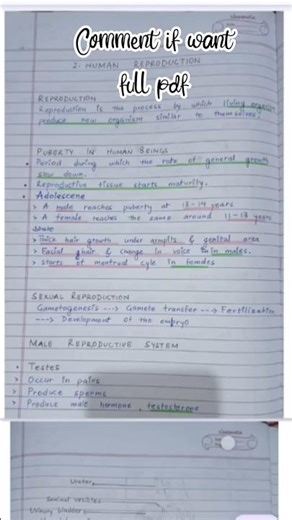 Comment if want
full pdf
Classmate
2. HUMAN REPRODUCTION
REPRODUCTION
Reproduction is the process by which living organism
produce new organism similar to themselves.
PUBERTY IN HUMAN BEINGS
• Period during which the rate of general growth
slow down.
• Reproductive tissue starts maturity.
• Adolescene
> A male reaches puberty at 13-14 years
> A female reaches the same around 11-13 years
> Thick hair growth under armpits & genital area
> Facial hair & change in voice in males.
> Starts of mentrual cyle in females
SEXUAL REPRODUCTION
Gametogenesis ---> Gamete transfer ---> Fertilization
---> Development of the embryo
MALE REPRODUCTIVE SYSTEM
• Testes
> Occur in pairs
> Produce sperms
> Produce male hormone, testosterone
Classmate
Ureter
Seminal vesicles
Urinary bladder